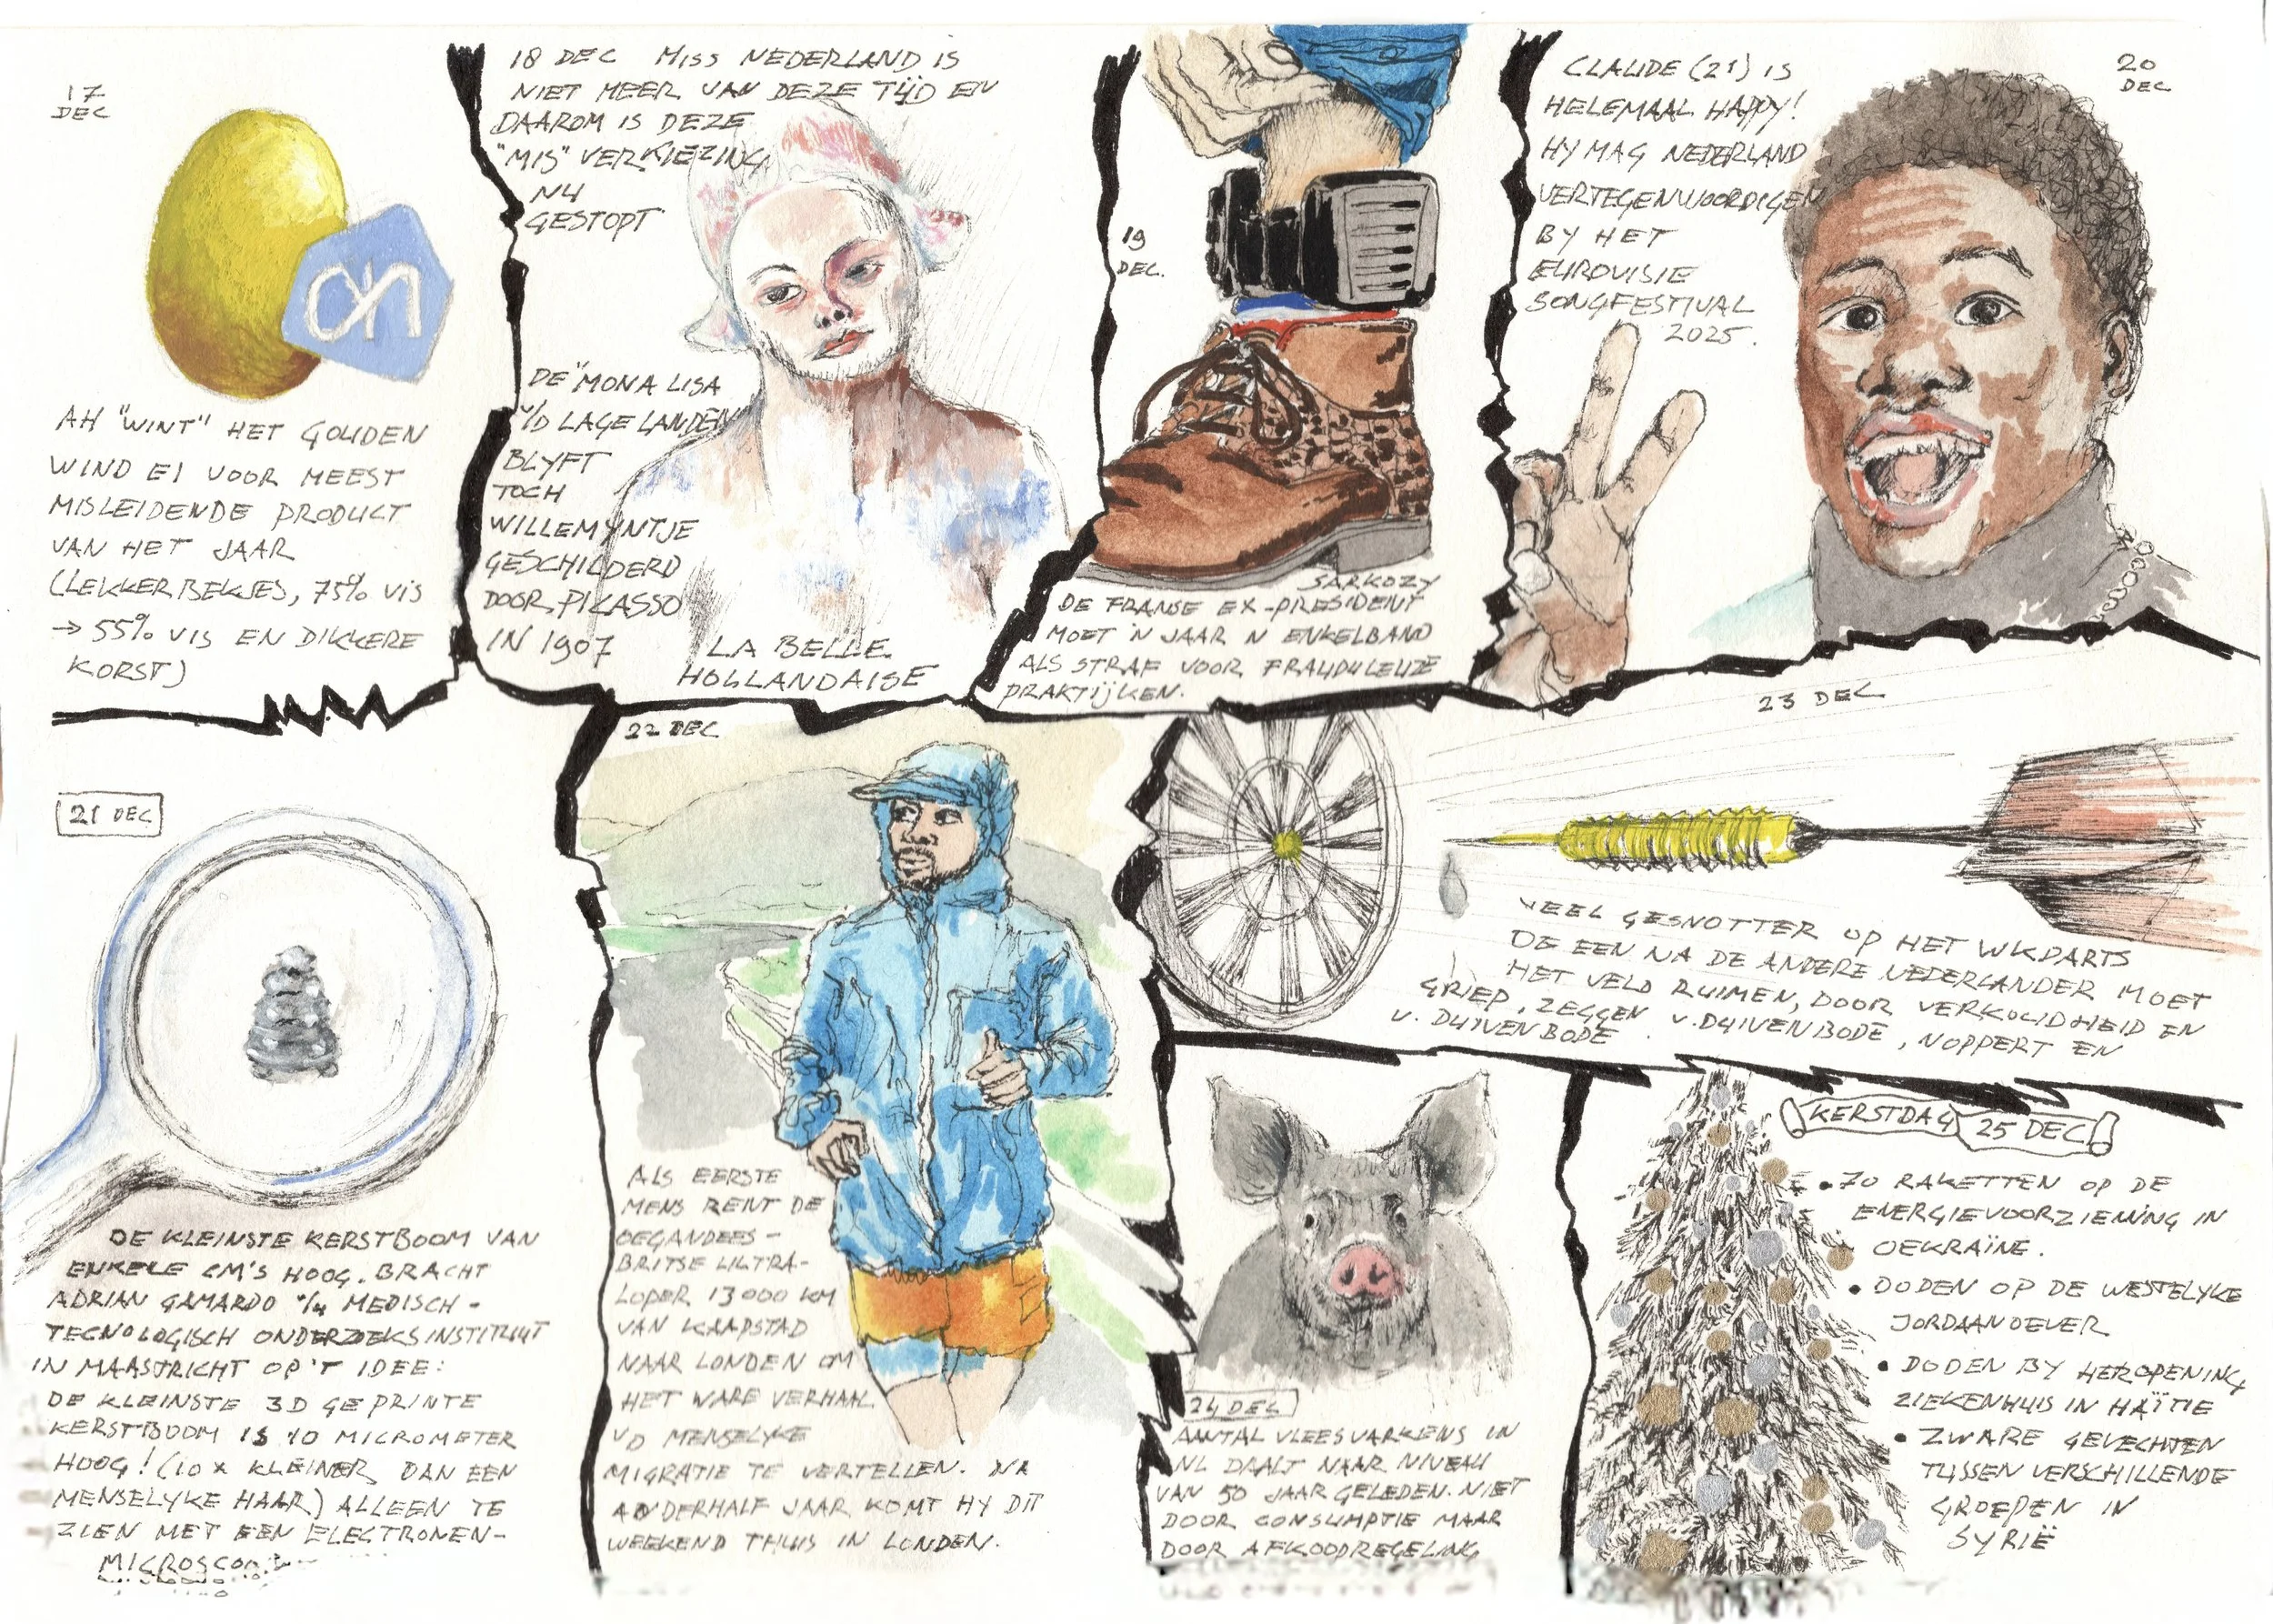 17
DEC
ah
AH "WINT" HET GOUDEN
WIND EI VOOR MEEST
MISLEIDENDE PRODUCT
VAN HET JAAR
(LEKKERBEKJES, 75% VIS
→ 55% VIS EN DIKKERE
KORST)
18 DEC MISS NEDERLAND IS
NIET MEER VAN DEZE TIJD EN
DAAROM IS DEZE
"MIS" VERKIEZING
NU
GESTOPT
DE "MONA LISA
V/D LAGE LANDEN
BLYFT
TOCH
WILLEMYNTJE
GESCHILDERD
DOOR PICASSO
IN 1907
LA BELLE
HOLLANDAISE
19
DEC.
SARKOZY
DE FRANSE EX-PRESIDENT
MOET 'N JAAR 'N ENKELBAND
ALS STRAF VOOR FRAUDULEUZE
PRAKTIJKEN.
20
DEC
CLAUDE (21) IS
HELEMAAL HAPPY!
HY MAG NEDERLAND
VERTEGENWOORDIGEN
BY HET
EUROVISIE
SONGFESTIVAL
2025.
21 DEC
DE KLEINSTE KERSTBOOM VAN
ENKELE CM'S HOOG. BRACHT
ADRIAN GAMARDO MEDISCH-
TECNOLOGISCH ONDERZOEKSINSTITUUT
IN MAASTRICHT OP 'T IDEE:
DE KLEINSTE 3D GEPRINTE
KERSTBOOM IS 10 MICROMETER
HOOG! (10 x KLEINER DAN EEN
MENSELYKE HAAR) ALLEEN TE
ZIEN MET EEN ELECTRONEN-
22 DEC
ALS EERSTE
MENS RENT DE
OEGANDEES-
BRITSE ULTRA-
LOPER 13000 KM
VAN KAAPSTAD
NAAR LONDEN OM
HET WARE VERHAAL
VD MENSELYKE
MIGRATIE TE VERTELLEN. NA
ANDERHALF JAAR KOMT HY DIT
WEEKEND THUIS IN LONDEN.
23 DEC
VEEL GESNOTTER OP HET WK DARTS
DE EEN NA DE ANDERE NEDERLANDER MOET
HET VELD RUIMEN, DOOR VERKOUDHEID EN
GRIEP, ZEGGEN V. DUIVENBODE, NOPPERT EN
V. DUIVENBODE
24 DEC
AANTAL VLEESVARKENS IN
NL DAALT NAAR NIVEAU
VAN 50 JAAR GELEDEN. NIET
DOOR CONSUMPTIE MAAR
DOOR AFKOOPREGELING
KERSTDAG 25 DEC
• 70 RAKETTEN OP DE
ENERGIEVOORZIENING IN
OEKRAÏNE.
• DODEN OP DE WESTELYKE
JORDAANOEVER
• DODEN BY HEROPENING
ZIEKENHUIS IN HAÏTIE
• ZWARE GEVECHTEN
TUSSEN VERSCHILLENDE
GROEPEN IN
SYRIË